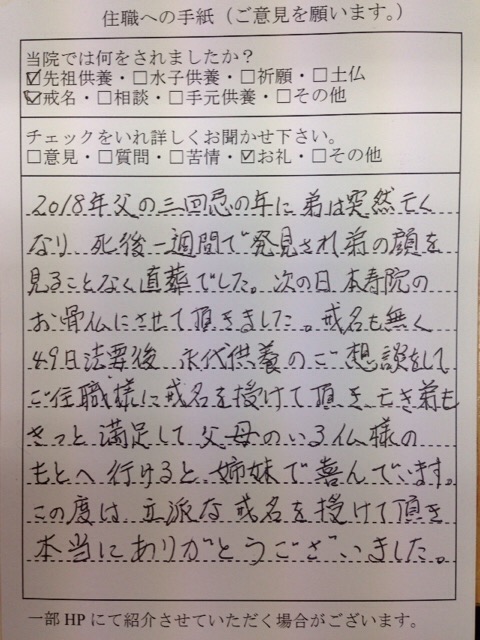 住職への手紙（ご意見を願います。）
当院では何をされましたか？
☑先祖供養・☐水子供養・☐祈願・☐土仏
☑戒名・☐相談・☐手元供養・☐その他
チェックをいれ詳しくお聞かせ下さい。
☐意見・☐質問・☐苦情・☑お礼・☐その他
2018年父の三回忌の年に弟は突然亡く
なり死後一週間で発見され弟の顔を
見ることなく直葬でした。次の日本寿院の
お骨仏にさせて頂きました。戒名も無く
49日法要後永代供養のご想談をして
ご住職様に戒名を授けて頂き亡き弟も
きっと満足して父母のいる仏様の
もとへ行けると姉妹で喜んでいます。
この度は立派な戒名を授けて頂き
本当にありがとうございました。
一部HPにて紹介させていただく場合がございます。